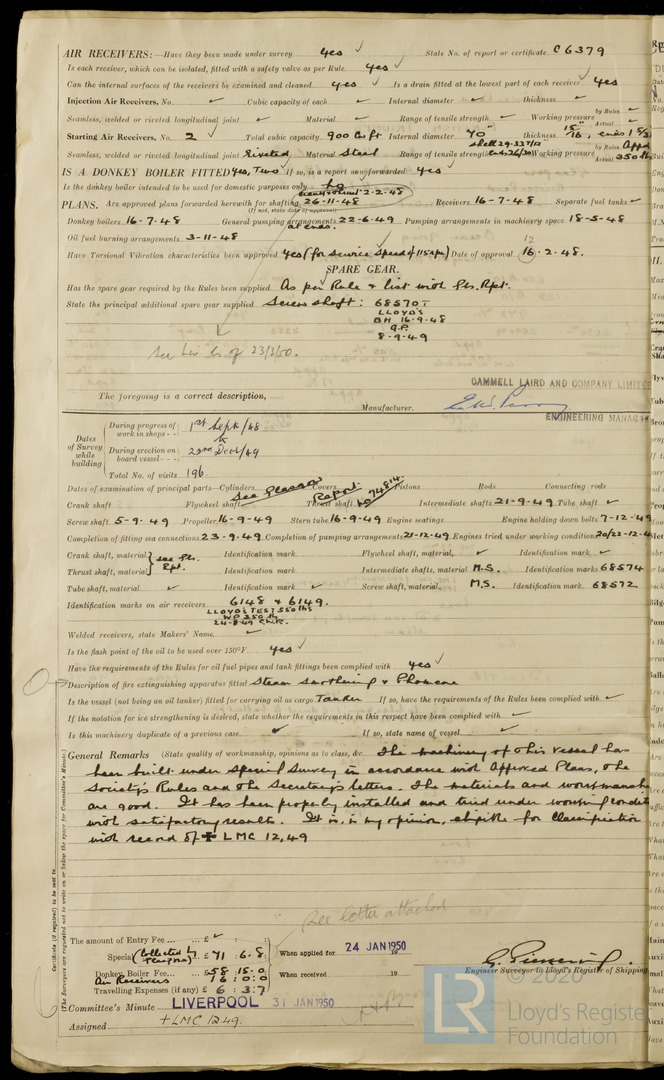 AIR RECEIVERS:—Have they been made under survey yes ✓ State No. of report or certificate C6379
Is each receiver, which can be isolated, fitted with a safety valve as per Rule yes ✓
Can the internal surfaces of the receivers be examined and cleaned yes ✓ Is a drain fitted at the lowest part of each receiver yes
Injection Air Receivers, No. ✓ Cubic capacity of each ✓ Internal diameter ✓ thickness ✓
Seamless, welded or riveted longitudinal joint ✓ Material ✓ Range of tensile strength ✓ Working pressure by Rules ✓ Actual ✓
Starting Air Receivers, No. 2 ✓ Total cubic capacity 900 Cu ft Internal diameter 70" thickness 15/16", ends 1 5/32
Seamless, welded or riveted longitudinal joint Riveted Material Steel Range of tensile strength shell 29-33 T/□" ends 26/30 Working pressure by Rules Appd Actual 350 lb
IS A DONKEY BOILER FITTED yes, Two If so, is a report now forwarded yes
Is the donkey boiler intended to be used for domestic purposes only No
PLANS. Are approved plans forwarded herewith for shafting 26-11-48 Receivers 16-7-48 Separate fuel tanks ✓
(If not, state date of approval)
Donkey boilers 16-7-48 General pumping arrangements 22-6-49 Pumping arrangements in machinery space 18-5-48
at ends.
Oil fuel burning arrangements 3-11-48
Have Torsional Vibration characteristics been approved yes (for service speed of 115 rpm) Date of approval 16-2-48.
SPARE GEAR.
Has the spare gear required by the Rules been supplied As per Rule & list with Gls. Rpt.
State the principal additional spare gear supplied Screw shaft: 68570T
LLOYD'S
BH 16-9-48
G.P.
8-9-49
See Lwr Ls of 23/2/50.
CAMMELL LAIRD AND COMPANY LIMITED
The foregoing is a correct description,
Manufacturer.
ENGINEERING MANAGER
Dates of Survey while building
During progress of work in shops - - 1st Sept/48
to
During erection on board vessel - - - 22nd Dec/49
Total No. of visits 196
Dates of examination of principal parts—Cylinders Covers Pistons Rods Connecting rods
See Glasgow Report No 74814.
Crank shaft Flywheel shaft Thrust shaft Intermediate shafts 21-9-49 Tube shaft ✓
Screw shaft 5-9-49 Propeller 16-9-49 Stern tube 16-9-49 Engine seatings Engine holding down bolts 7-12-49
Completion of fitting sea connections 23-9-49 Completion of pumping arrangements 21-12-49 Engines tried under working conditions 20/22-12-4
Crank shaft, material see Gls. Rpt. Identification mark Flywheel shaft, material, ✓ Identification mark ✓
Thrust shaft, material Identification mark Intermediate shafts, material M.S. Identification marks 68574
Tube shaft, material ✓ Identification mark ✓ Screw shaft, material M.S. Identification mark 68572
Identification marks on air receivers 6148 & 6149.
LLOYD'S TEST 550 lbs
WP 350 lb
24-8-49
Welded receivers, state Makers' Name ✓
Is the flash point of the oil to be used over 150°F. yes ✓
Have the requirements of the Rules for oil fuel pipes and tank fittings been complied with yes ✓
Description of fire extinguishing apparatus fitted Steam smothering & Phomene
Is the vessel (not being an oil tanker) fitted for carrying oil as cargo Tanker If so, have the requirements of the Rules been complied with ✓
If the notation for ice strengthening is desired, state whether the requirements in this respect have been complied with ✓
Is this machinery duplicate of a previous case ✓ If so, state name of vessel ✓
General Remarks (State quality of workmanship, opinions as to class, &c. The machinery of this vessel has
been built under Special Survey in accordance with Approved Plans, the
Society's Rules and the Secretary's letters. The materials and workmansh
are good. It has been properly installed and tried under working condit
with satisfactory results. It is, in my opinion, eligible for Classification
with record of ✠ LMC 12,49
See letter attached
Certificate (if required) to be sent to
(The Surveyors are requested not to write on or below the space for Committee's Minute.)
The amount of Entry Fee ... £ ✓
Special (Collected by Glasgow) £ 71 : 6 - 8
Donkey Boiler Fee ... £ 58 : 15 - 0
Air Receivers 16 : 0 : 0
Travelling Expenses (if any) £ 6 : 3 : 7
When applied for 24 JAN 1950 19
When received 19
Engineer Surveyor to Lloyd's Register of Shipping
Committee's Minute LIVERPOOL 31 JAN 1950
Assigned + LMC 12.49.
© 2020
LR
Lloyd's Register
Foundation